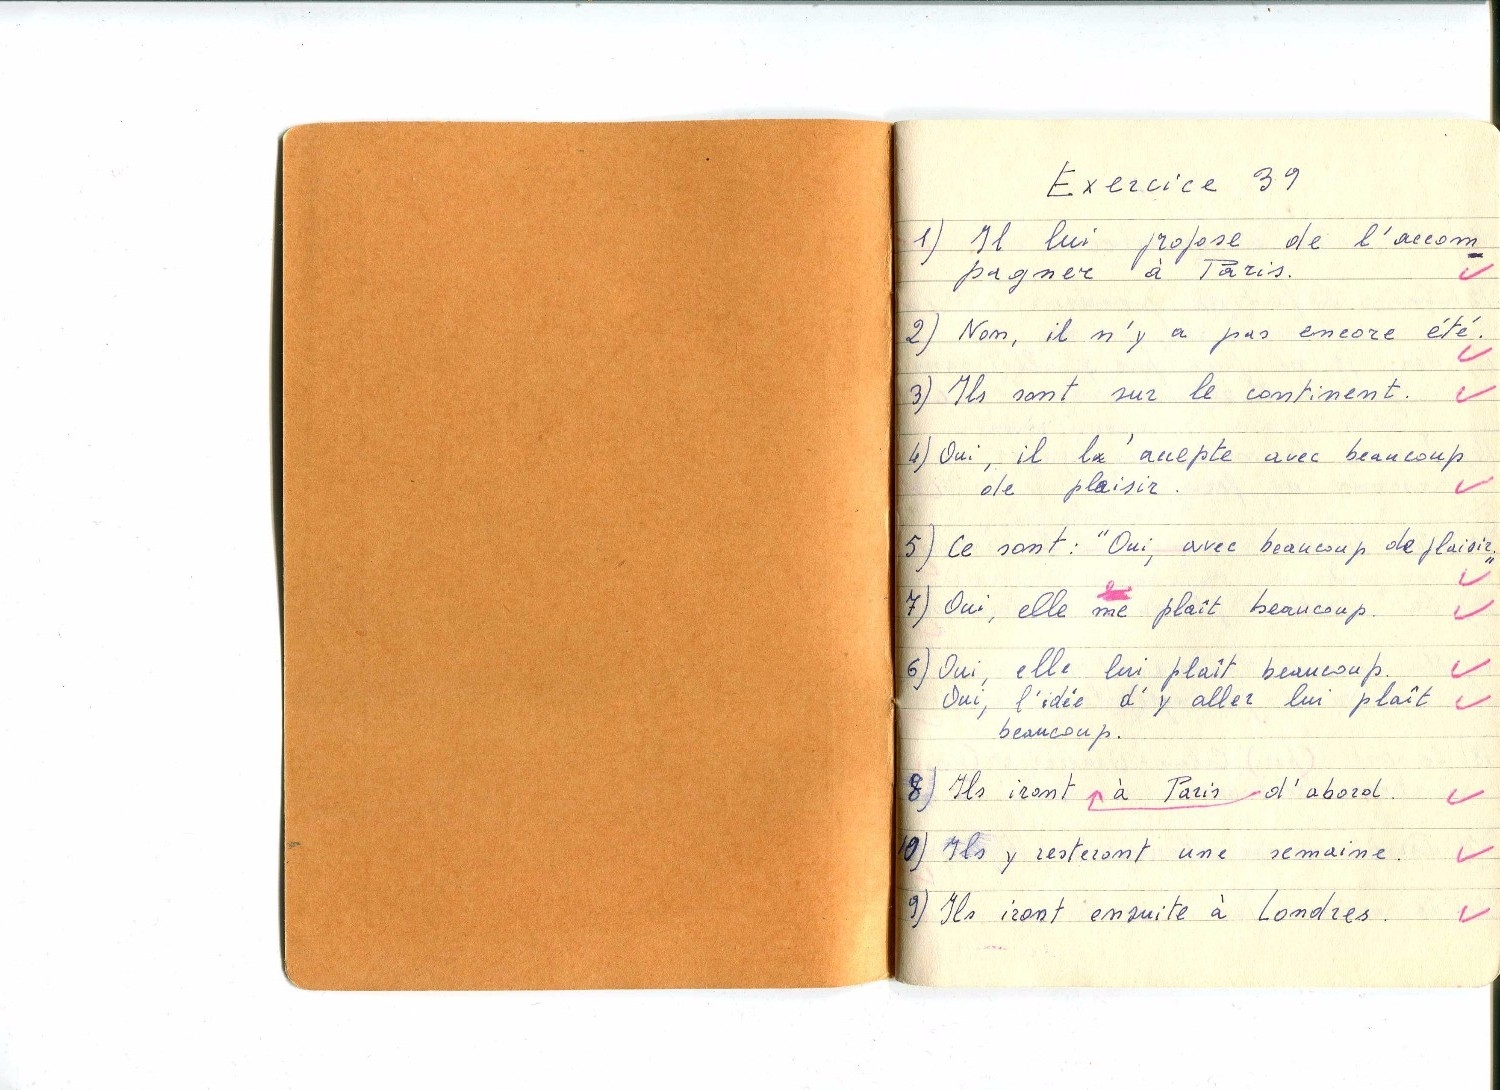 Exercice 39
1) Il lui propose de l'accom
pagner à Paris.
2) Non, il n'y a pas encore été.
3) Ils sont sur le continent.
4) Oui, il l'accepte avec beaucoup
de plaisir.
5) Ce sont: "Oui, avec beaucoup de plaisir."
7) Oui, elle me plaît beaucoup.
6) Oui, elle lui plaît beaucoup.
Oui, l'idée d'y aller lui plaît
beaucoup.
8) Ils iront à Paris d'abord.
10) Ils y resteront une semaine.
9) Ils iront ensuite à Londres.